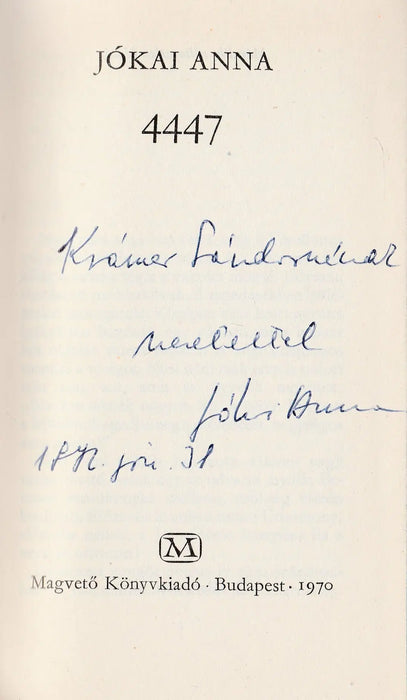 JÓKAI ANNA
4447
Krámer Sándornénak
szeretettel
Jókai Anna
31
M
Magvető Könyvkiadó · Budapest · 1970